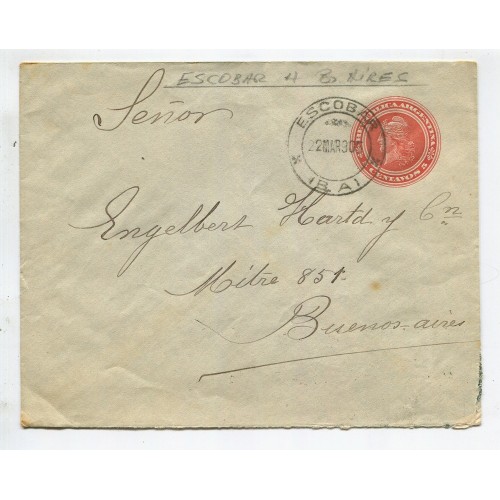 ESCOBAR 4 Bs AIRES
Señor
ESCOBAR
22 MAR 900
(B.A)
REPUBLICA ARGENTINA
5 CENTAVOS 5
Engelbert Hartd y Cn
Mitre 851.
Buenos-aires